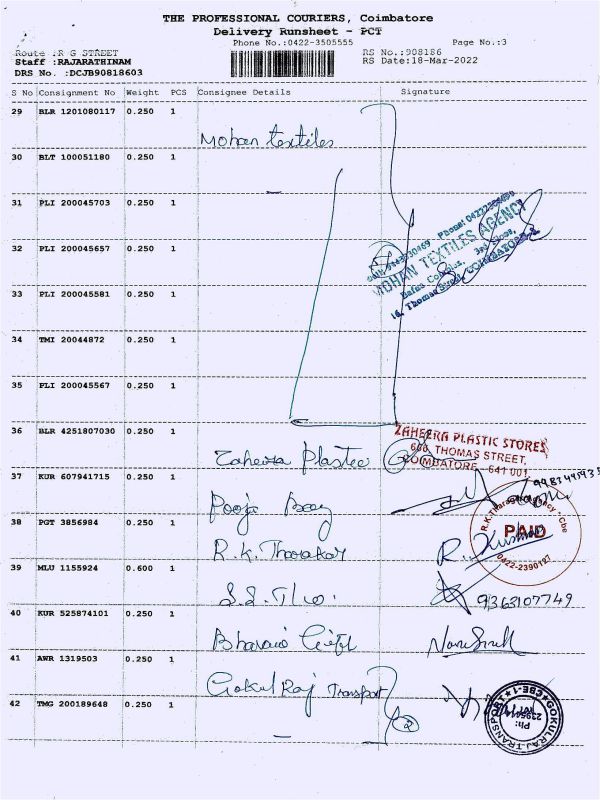 THE PROFESSIONAL COURIERS, Coimbatore
Delivery Runsheet - PCT
Phone No.:0422-3505555 Page No.:3
Route :R G STREET RS No.:908186
Staff :RAJARATHINAM RS Date:18-Mar-2022
DRS No. :DCJB90818603
S No Consignment No Weight PCS Consignee Details Signature
29 BLR 1201080117 0.250 1
Mohan textiles
30 BLT 100051180 0.250 1
31 PLI 200045703 0.250 1
32 PLI 200045657 0.250 1
MOHAN TEXTILES AGENCY
33 PLI 200045581 0.250 1
16, Thomas Street, COIMBATORE
34 TMI 20044872 0.250 1
35 PLI 200045567 0.250 1
36 BLR 4251807030 0.250 1
ZAHEERA PLASTIC STORES
THOMAS STREET,
COIMBATORE - 641 001
Zaheera Plastic
37 KUR 607941715 0.250 1
Pooja
38 PGT 3856984 0.250 1
PAID
0422-2390127
R.K. Tharakar
39 MLU 1155924 0.600 1
9363107749
40 KUR 525874101 0.250 1
41 AWR 1319503 0.250 1
Gokul Raj Transport
42 TMG 200189648 0.250 1
2